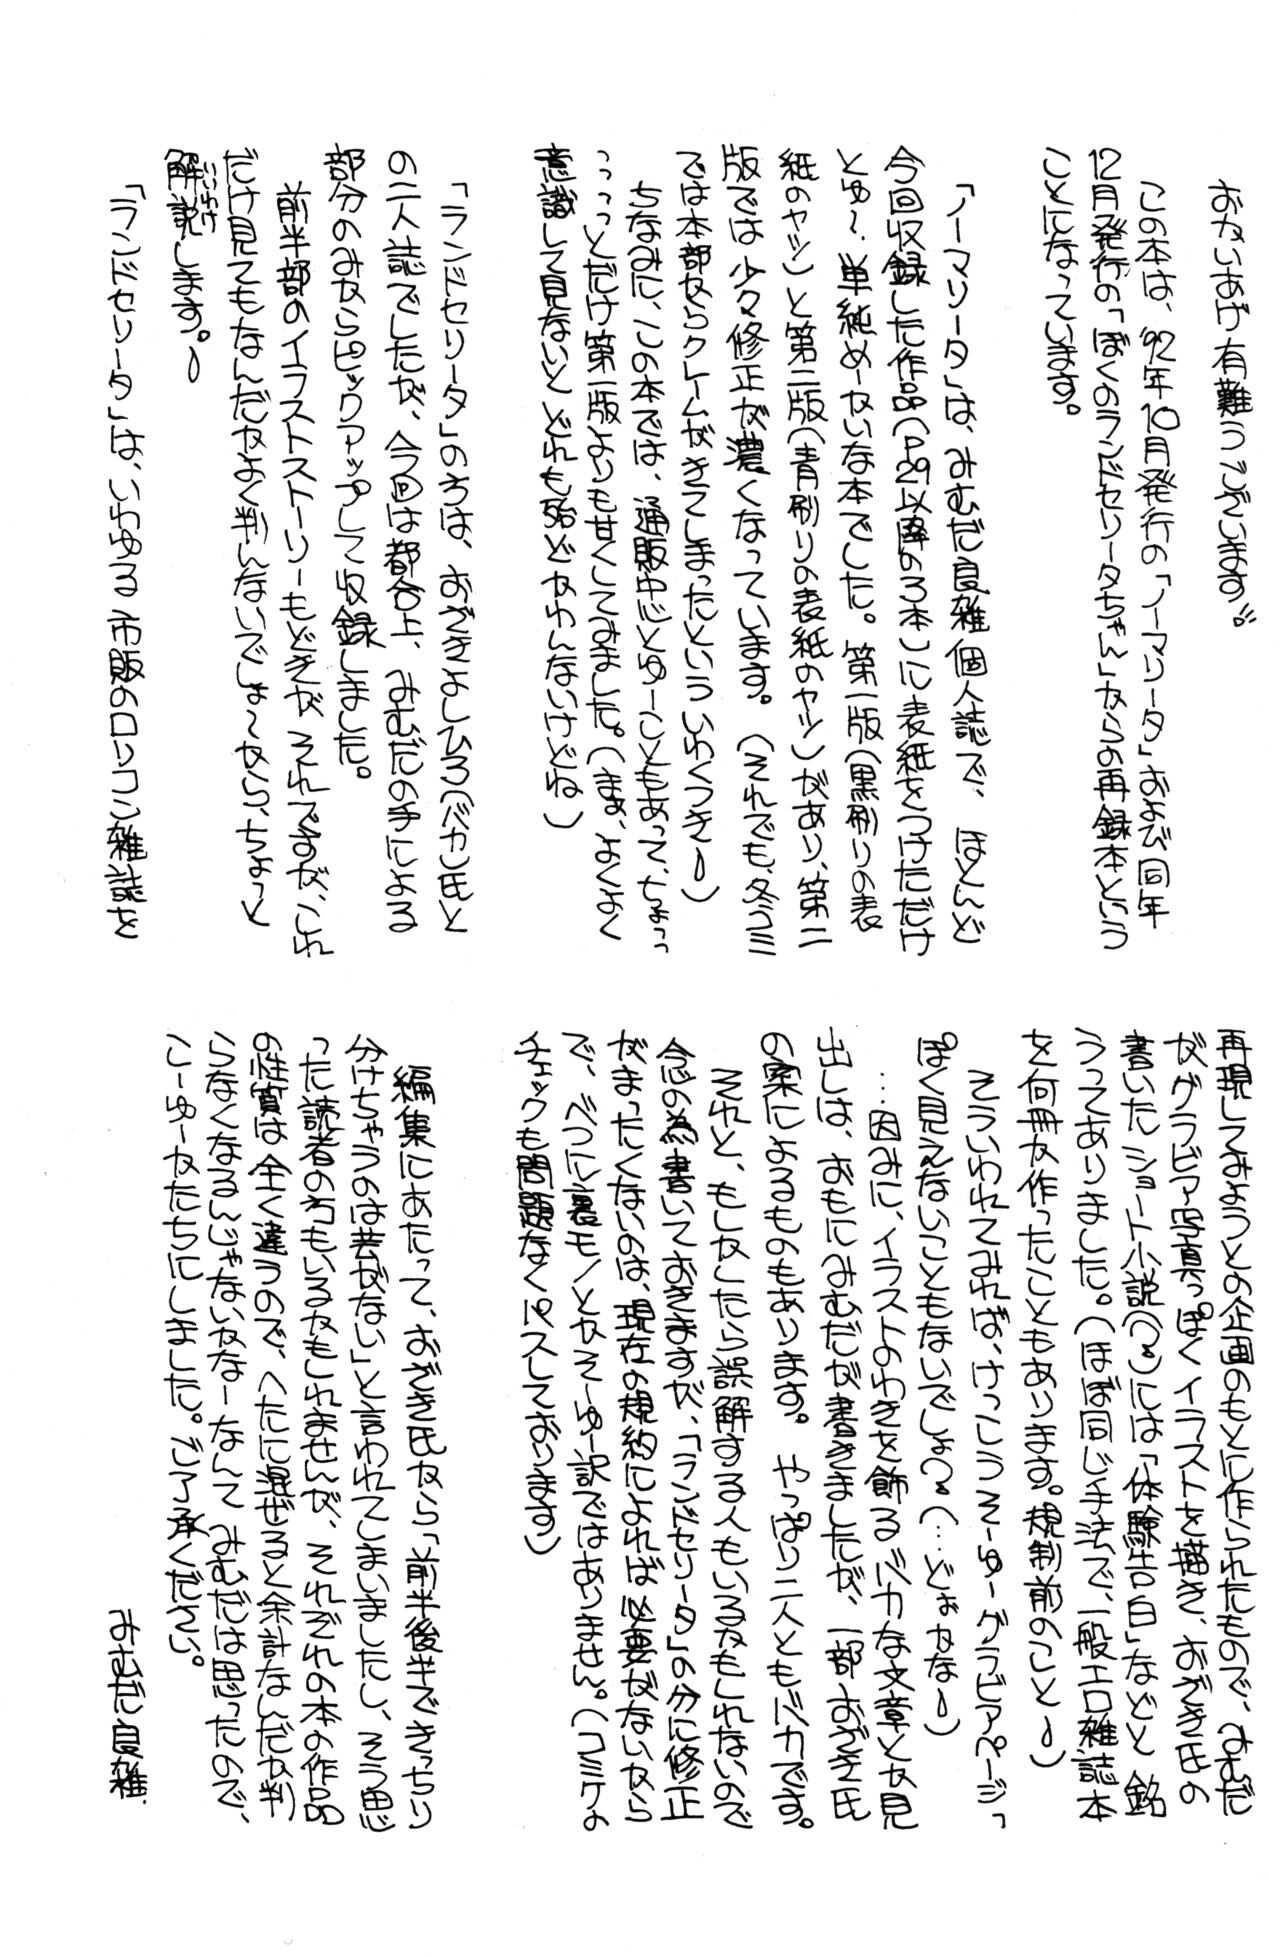 おかいあげ有難うございます〃
この本は、'92年10月発行の「ノーマリータ」および同年
12月発行の「ぼくのランドセリータちゃん」からの再録本という
ことになっています。
「ノーマリータ」は、みむだ良雑個人誌で、ほとんど
今回収録した作品(P29以降の3本)に表紙をつけただけ
とゆ〜、単純めーかいな本でした。第一版(黒刷りの表
紙のヤツ)と第二版(青刷りの表紙のヤツ)があり、第二
版では少々修正が濃くなっています。(それでも、冬コミ
では本部からクレームがきてしまったといういわくつき)
ちなみに、この本では、通販中心とゆーこともあって、ちょっ
っっっとだけ第一版よりも甘くしてみました。(まぁ、よくよく
意識して見ないと どれも殆どかわんないけどね)
「ランドセリータ」のろは、おざきよしひろ(バカ)氏と
の二人誌でしたが、今回は都合上、みむだの手による
部分のみからピックアップして収録しました。
前半部のイラストストーリーもどきが、それですが、これ
だけ見てもなんだかよく判んないでしょ〜から、ちょっと
解説します。
いいわけ
「ランドセリータ」は、いわゆる市販のロリコン雑誌を
再現してみようとの企画のもとに作られたもので、みむだ
がグラビア写真っぽくイラストを描き、おざき氏の
書いたショート小説(?)には「体験告白」などと銘
うってありました。(ほぼ同じ手法で、一般エロ雑誌本
を何冊か作ったこともあります。規制前のこと)
そういわれてみれば、けっこうそーゆーグラビアページっ
ぽく見えないこともないでしょ?(…どぉかな)
…因みに、イラストのわきを飾るバカな文章とか見
出しは、おもにみむだが書きましたが、一部おざき氏
の案によるものもあります。やっぱり二人ともバカです。
それと、もしかしたら誤解する人もいるかもしれないので
念の為書いておきますが、「ランドセリータ」の分に修正
がまったくないのは、現在の規約によれば必要がないから
で、べつに裏モノとかそーゆー訳ではありません。(コミケの
チェックも問題なくパスしております)
編集にあたって、おざき氏から「前半後半できっちり
分けちゃうのは芸がない」と言われてしまいましたし、そう思
った読者の方もいるかもしれませんが、それぞれの本の作品
の性質は全く違うので、へたに混ぜると余計なんだか判
らなくなるんじゃないかなーなんて みむだは思ったので、
こーゆーかたちにしました。ご了承ください。
みむだ良雑.